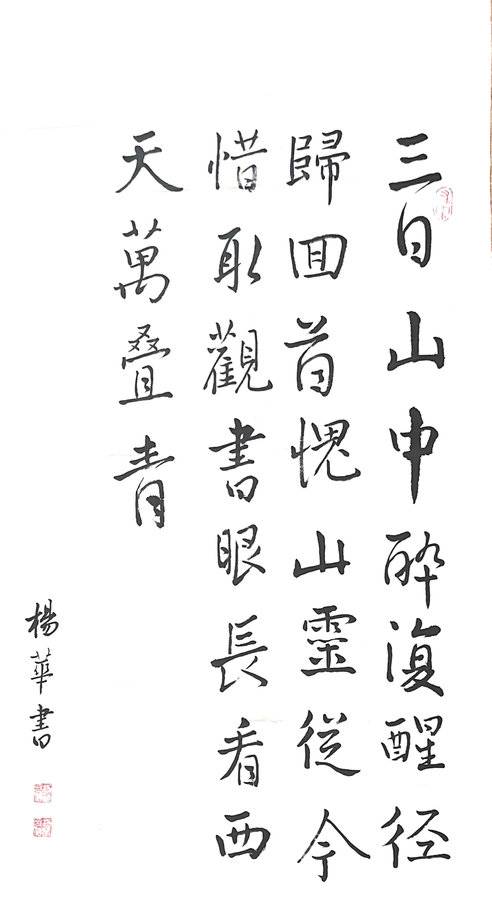 三日山中醉復醒径
歸回首愧山靈從今
惜取觀書眼長看西
天萬叠青
楊華書